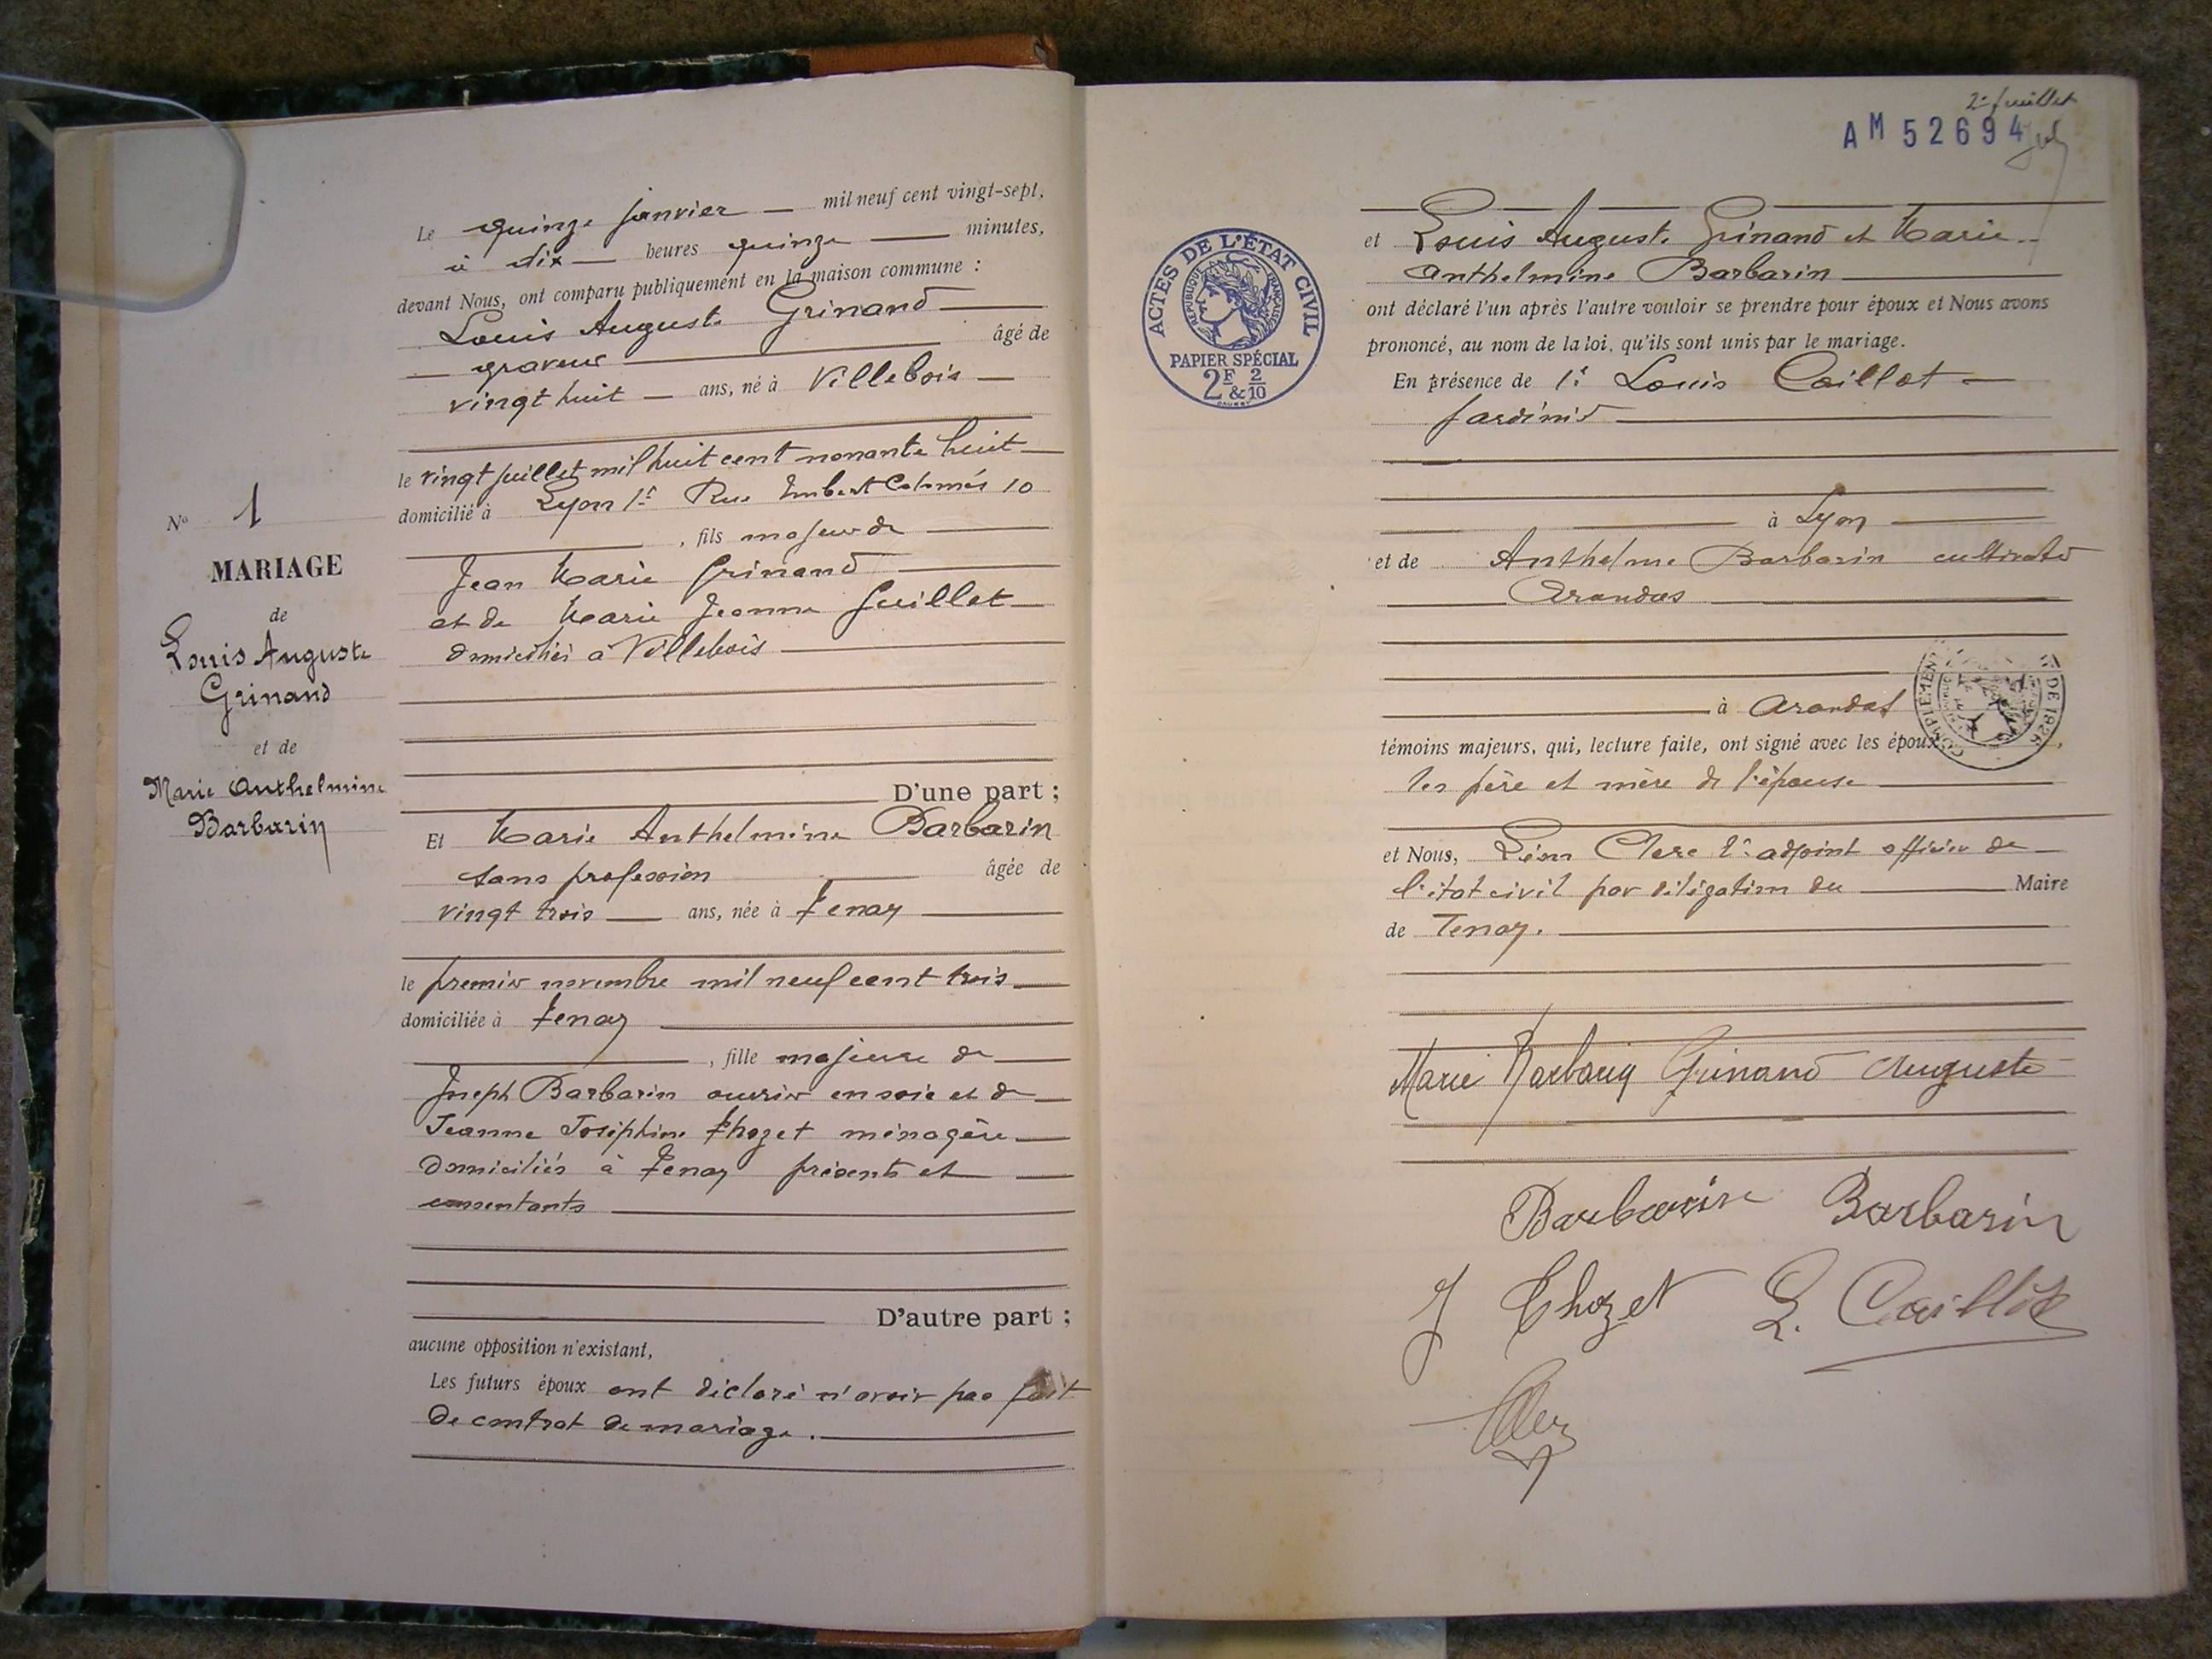 Le quinze janvier mil neuf cent vingt-sept,
à dix heures quinze minutes,
devant Nous, ont comparu publiquement en la maison commune :
Louis Auguste Grinand
graveur âgé de
vingt huit ans, né à Villebois
le vingt juillet mil huit cent nonante huit
domicilié à Lyon 1er Rue Imbert Colomés 10
, fils majeur de
Jean Marie Grinand
et de Marie Jeanne Guillet
domiciliés à Villebois
D'une part ;
Et Marie Anthelmine Barbarin
sans profession âgée de
vingt trois ans, née à Tenay
le premier novembre mil neuf cent trois
domiciliée à Tenay
, fille majeure de
Joseph Barbarin ouvrier en soie et de
Jeanne Joséphine Thozet ménagère
domiciliés à Tenay présents et
consentants
D'autre part ;
aucune opposition n'existant,
Les futurs époux ont déclaré n'avoir pas fait
de contrat de mariage.
No 1
MARIAGE
de
Louis Auguste
Grinand
et de
Marie Anthelmine
Barbarin
2e feuillet
AM 52694
ACTES DE L'ÉTAT CIVIL
RÉPUBLIQUE FRANÇAISE
PAPIER SPÉCIAL
2F & 2/10
et Louis Auguste Grinand et Marie
Anthelmine Barbarin
ont déclaré l'un après l'autre vouloir se prendre pour époux et Nous avons
prononcé, au nom de la loi, qu'ils sont unis par le mariage.
En présence de Louis Caillot
jardinier
à Lyon
et de Anthelme Barbarin cultivateur
Arandas
à Arandas
COMPLÉMENT DE 1926
témoins majeurs, qui, lecture faite, ont signé avec les époux
les père et mère de l'épouse
et Nous, Léon Clerc adjoint officier de
l'état civil par délégation du Maire
de Tenay.
Marie Barbarin Grinand Auguste
Barbarin Barbarin
J Thozet L. Caillot